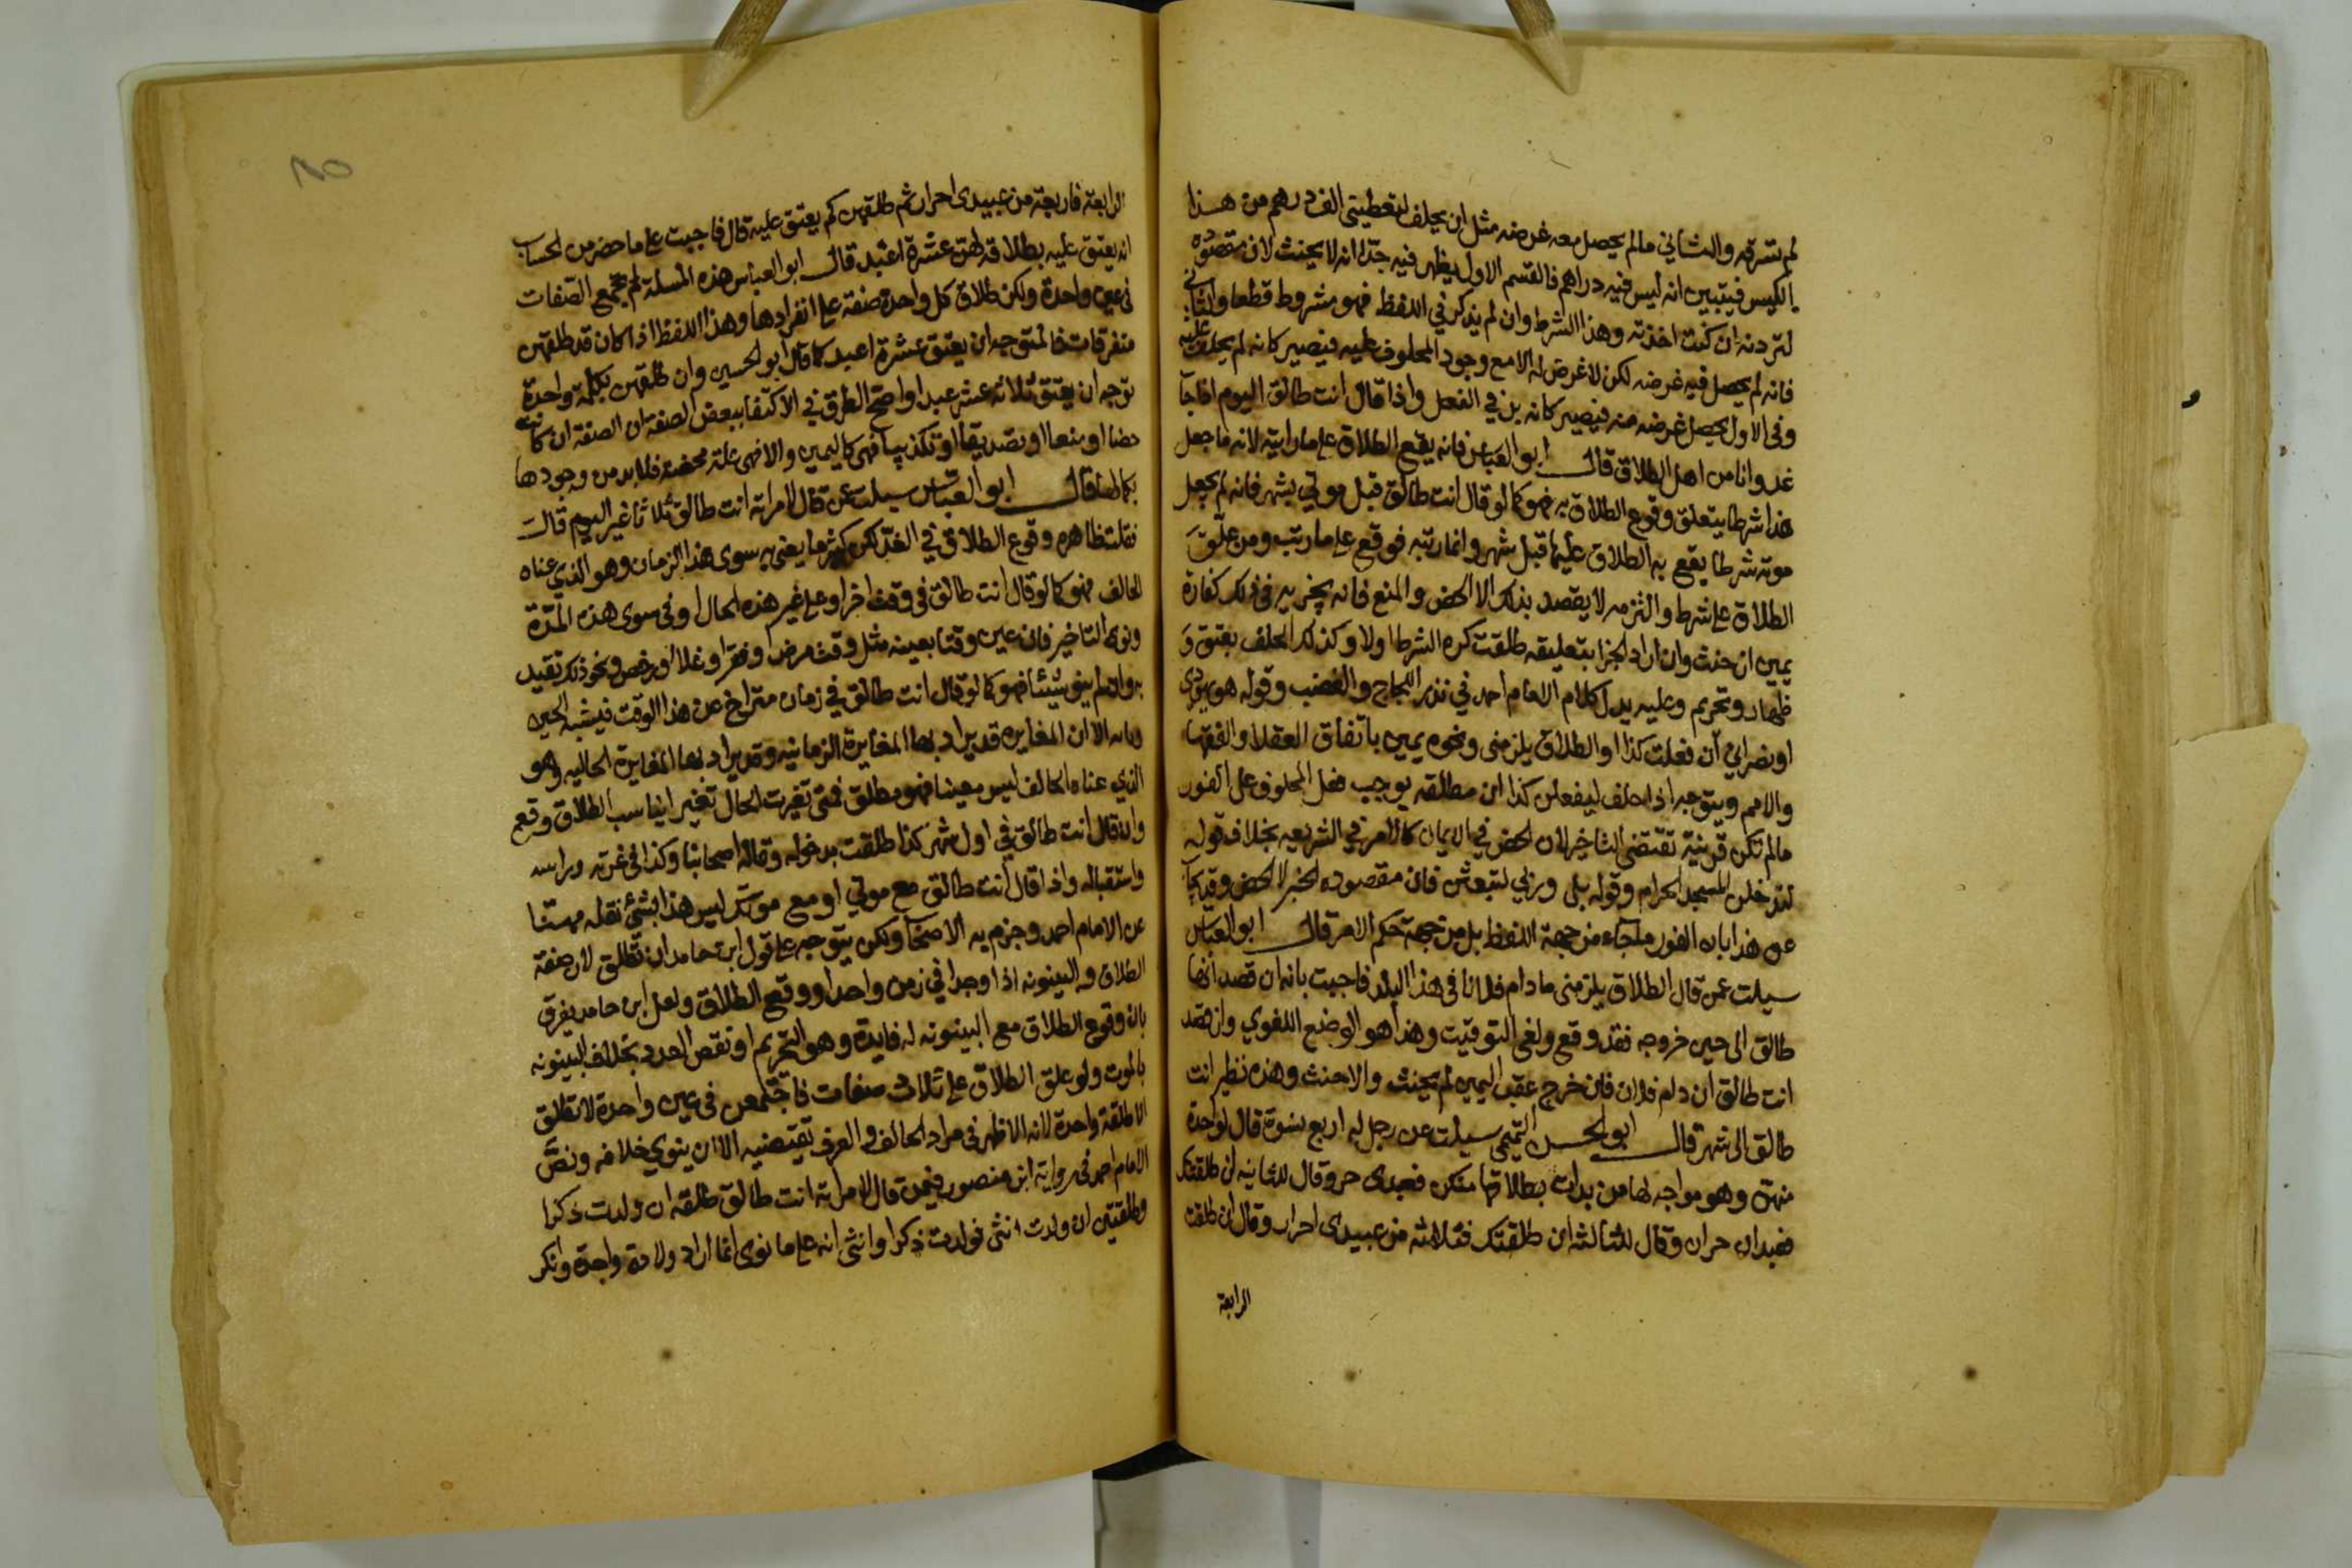 لم تسرقه والثاني مالم يحصل معه غرضه مثل ان يحلف لتعطيني الف درهم من هذا
الكيس فيتبين انه ليس فيه دراهم فالقسم الاول يظهر فيه جدا انه لا يحنث لان مقصوده
لتردنه ان كنت اخذته وهذا الشرط وان لم يذكر في اللفظ فهو مشروط قطعا والثاني
فانه لم يحصل فيه غرضه لكن لا غرض له الا مع وجود المحلوف عليه فيصير كانه لم يحلف عليه
وفي الاول يحصل غرضه منه فيصير كانه بر في الفعل واذا قال انت طالق اليوم اذا جا
غد وانا من اهل الطلاق قال ابو العباس فانه يقع الطلاق على ما رايته لانه ما جعل
هذا شرطا يتعلق وقوع الطلاق به فهو كما لو قال انت طالق قبل موتي بشهر فانه لم يجعل
موته شرطا يقع به الطلاق عليها قبل شهر وانما رتبه فوقع على ما رتب ومن علق
الطلاق على شرط والتزمه لا يقصد بذلك الا الحض والمنع فانه يجزيه في ذلك كفارة
يمين ان حنث وان اراد الجزا بتعليقه طلقت كره الشرط اولا وكذلك الحلف بعتق و
ظهار وتحريم وعليه يدل كلام الامام احمد في نذر اللجاج والغضب وقوله هو يهودي
او نصراني ان فعلت كذا او الطلاق يلزمني ونحوه يمين باتفاق العقلا والفقها
والامم ويتوجه اذا حلف ليفعلن كذا ان مطلقه يوجب فعل المحلوف على الفور
مالم تكن قرينة تقتضي التاخير لان الحض في الايمان كالامر في الشريعه بخلاف قوله
لتدخلن المسجد الحرام وقوله بلى وربي لتبعثن فان مقصوده الخبر لا الحض وقد يجاب
عن هذا بان الفور ما جآء من جهة اللفظ بل من جهة حكم الامر قال ابو العباس
سيلت عمن قال الطلاق يلزمني مادام فلانا في هذا البلد فاجبت بانه ان قصد انها
طالق الى حين خروجه فقد وقع ولغى التوقيت وهذا هو الوضع اللغوي وان قصد
انت طالق ان دام فلان فان خرج عقب اليمين لم يحنث والا حنث وهذه نظير انت
طالق الى شهر قال ابو الحسن التميمي سيلت عن رجل له اربع نسوة قال لواحدة
منهن وهو مواجه لها من بدات بطلاقها منكن فعبدى حر وقال للثانيه ان طلقتك
فعبدان حران وقال للثالثه ان طلقتك فثلاثه من عبيدى احرار وقال ان طلقت
الرابعة
الرابعة فاربعة من عبيدى احرار ثم طلقهن كم يعتق عليه قال فاجبت على ما حضر من الحساب
انه يعتق عليه بطلاقه لهن عشرة اعبد قال ابو العباس هذه المسلة لم تجتمع الصفات
في عين واحدة ولكن طلاق كل واحدة صفة على انفرادها وهذا اللفظ اذا كان قد طلقهن
متفرقات فالمتوجه ان يعتق عشرة اعبد كما قال ابو الحسين وان طلقهن بكلمة واحدة
توجه ان يعتق ثلاثه عشر عبدا واصح الطرق في الاكتفا ببعض الصفة ان الصفة ان كانت
حضا او منعا او تصديقا او تكذيبا فهي كاليمين والا فهي علة محضه فلا بد من وجودها
بكمالها قال ابو العباس سيلت عن قال لامراته انت طالق ثلاثا غير اليوم قال
فقلت ظاهره وقوع الطلاق في الغد لكن كثيرا ما يعني به سوى هذا الزمان وهو الذي عناه
الحالف فهو كما لو قال انت طالق في وقت اخر او على غير هذه الحال او في سوى هذه المدة
ونوى التاخير فان عين وقتا بعينه مثل وقت مرض وفقر او غلا او رخص ونحو ذلك تقيد
به وان لم ينو شيئا فهو كما لو قال انت طالق في زمان متراخ عن هذا الوقت فيشبه الحين
الا ان المغايره قد يراد بها المغايرة الزمانيه وقد يراد بها المغايرة الحاليه وهو
الذي عناه الحالف ليس معينا فهو مطلق فمتى تغيرت الحال تغير ايناسب الطلاق وقع
وان قال انت طالق في اول شهر كذا طلقت بدخوله وقاله اصحابنا وكذا في غرته وراسه
واستقباله واذا قال انت طالق مع موتي او مع موتك ليس هذا بشيء نقله مهنا
عن الامام احمد وجزم به الاصحاب ولكن يتوجه على قول ابن حامد ان تطلق لان صفة
الطلاق والبينونه اذا وجدا في زمن واحد اووقع الطلاق ولعل ابن حامد يفرق
بان وقوع الطلاق مع البينونه له فايدة وهو التحريم او نقص العدد بخلاف البينونه
بالموت ولو علق الطلاق على ثلاث صفات فاجتمعن في عين واحدة لا تطلق
الا طلقة واحدة لانه الاظهر في مراد الحالف والعرف يقتضيه الا ان ينوي خلافه ونص
الامام احمد في رواية ابن منصور فيمن قال لامراته انت طالق طلقه ان ولدت ذكرا
وطلقتين ان ولدت انثى فولدت ذكرا وانثى انه على ما نوى انما اراد ولادة واحدة وانكر